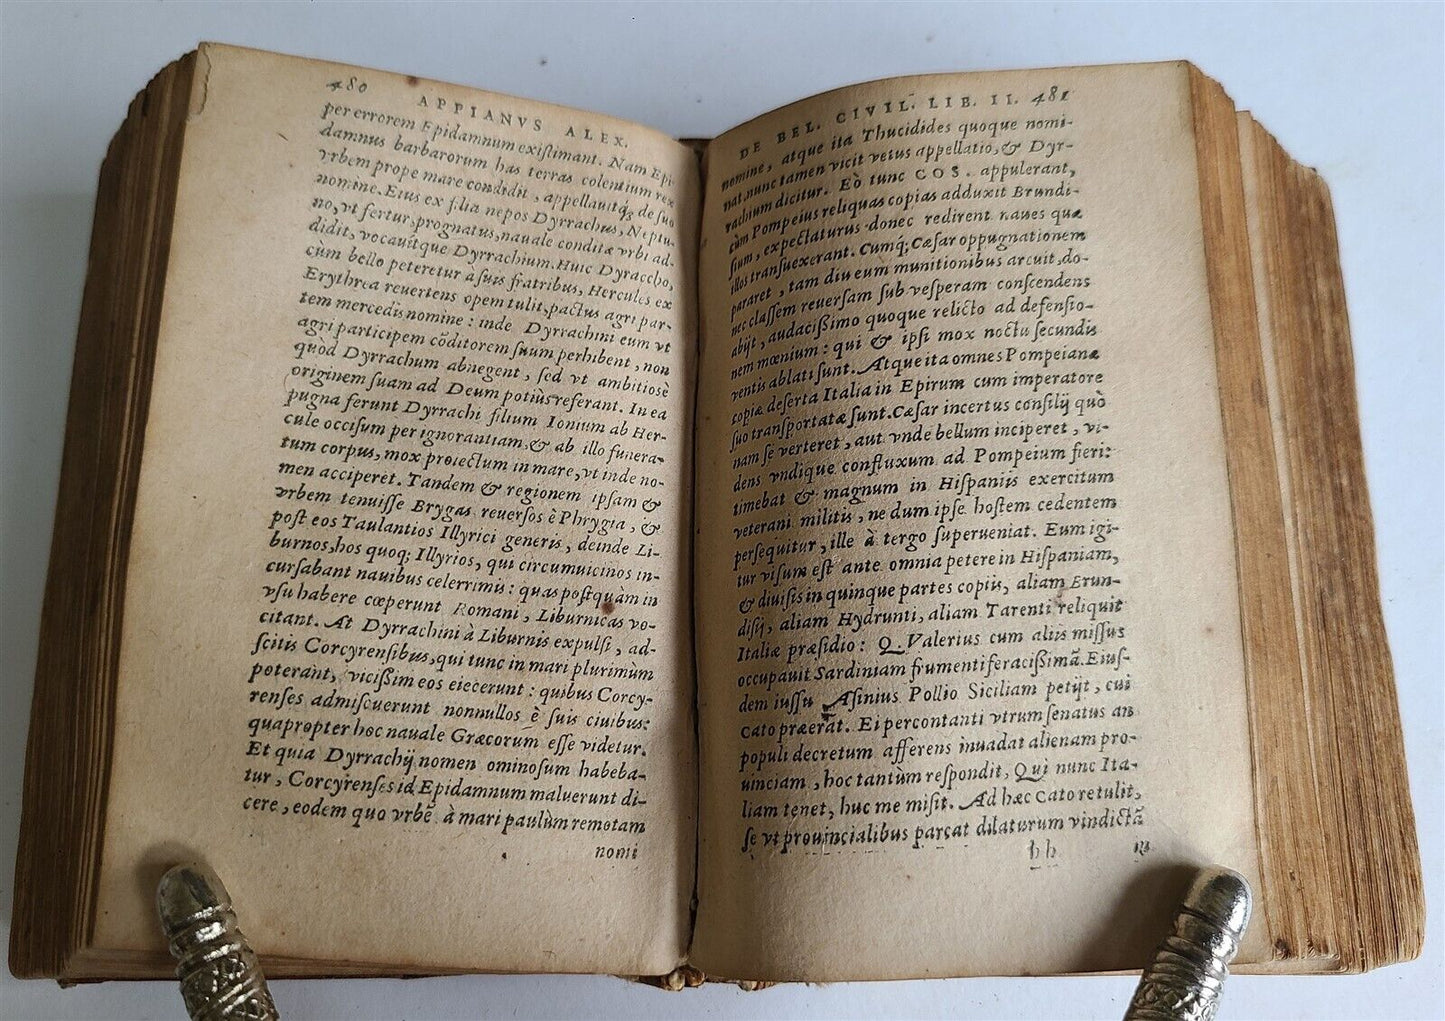 480 APPIANVS ALEX.
per errorem Epidamnum existimant. Nam Epi-
damnus barbarorum has terras colentium rex
vrbem prope mare condidit, appellauitq; de suo
nomine. Eius ex filia nepos Dyrrachus, Neptu-
no, vt fertur, prognatus, nauale conditæ vrbi ad-
didit, vocauítque Dyrrachium. Huic Dyraccho,
cùm bello peteretur à suis fratribus, Hercules ex
Erythrea reuertens opem tulit, pactus agri par-
tem mercedis nomine: inde Dyrrachini eum vt
agri participem cõditorem suum perhibent, non
quòd Dyrrachum abnegent, sed vt ambitiosè
originem suam ad Deum potiùs referant. In ea
pugna ferunt Dyrrachi filium Ionium ab Her-
cule occisum per ignorantiam, & ab illo funera-
tum corpus, mox proiectum in mare, vt inde no-
men acciperet. Tandem & regionem ipsam &
vrbem tenuisse Brygas reuersos è Phrygia, &
post eos Taulantios Illyrici generis, deinde Li-
burnos, hos quoq; Illyrios, qui circumuicinos in-
cursabant nauibus celerrimis: quas postquàm in
vsu habere cœperunt Romani, Liburnicas vo-
citant. At Dyrrachini à Liburnis expulsi, ad-
scitis Corcyrensibus, qui tunc in mari plurimùm
poterant, vicissim eos eiecerunt: quibus Corcy-
renses admiscuerunt nonnullos è suis ciuibus:
quapropter hoc nauale Græcorum esse videtur.
Et quia Dyrrachij nomen ominosum habeba-
tur, Corcyrenses id Epidamnum maluerunt di-
cere, eodem quo vrbẽ à mari paulùm remotam
nomi
DE BEL. CIVIL. LIB. II. 481
nomine, atque ita Thucidides quoque nomi-
nat, nunc tamen vicit vetus appellatio, & Dyr-
rachium dicitur. Eò tunc COS. appulerant,
cùm Pompeius reliquas copias adduxit Brundi-
sium, expectaturus donec redirent naues quæ
illos transuexerant. Cumq; Cæsar oppugnationem
pararet, tam diu eum munitionibus arcuit, do-
nec classem reuersam sub vesperam conscendens
abijt, audacissimo quoque relicto ad defensio-
nem mœnium: qui & ipsi mox noctu secundis
ventis ablati sunt. Atque ita omnes Pompeianæ
copiæ deserta Italia in Epirum cum imperatore
suo transportatæ sunt. Cæsar incertus consilij quò
nam se verteret, aut vnde bellum inciperet, vi-
dens vndique confluxum ad Pompeium fieri:
timebat & magnum in Hispaniis exercitum
veterani militis, ne dum ipse hostem cedentem
persequitur, ille à tergo superueniat. Eum igi-
tur visum est ante omnia petere in Hispaniam,
& diuisis in quinque partes copiis, aliam Brun-
disij, aliam Hydrunti, aliam Tarenti reliquit
Italiæ præsidio: Q. Valerius cum aliis missus
occupauit Sardiniam frumenti feracissimã. Eius-
dem iussu Asinius Pollio Siciliam petijt, cui
Cato præerat. Ei percontanti vtrum senatus an
populi decretum afferens inuadat alienam pro-
uinciam, hoc tantùm respondit, Qui nunc Ita-
liam tenet, huc me misit. Ad hæc Cato retulit,
se vt prouincialibus parcat dilaturum vindictã
hh